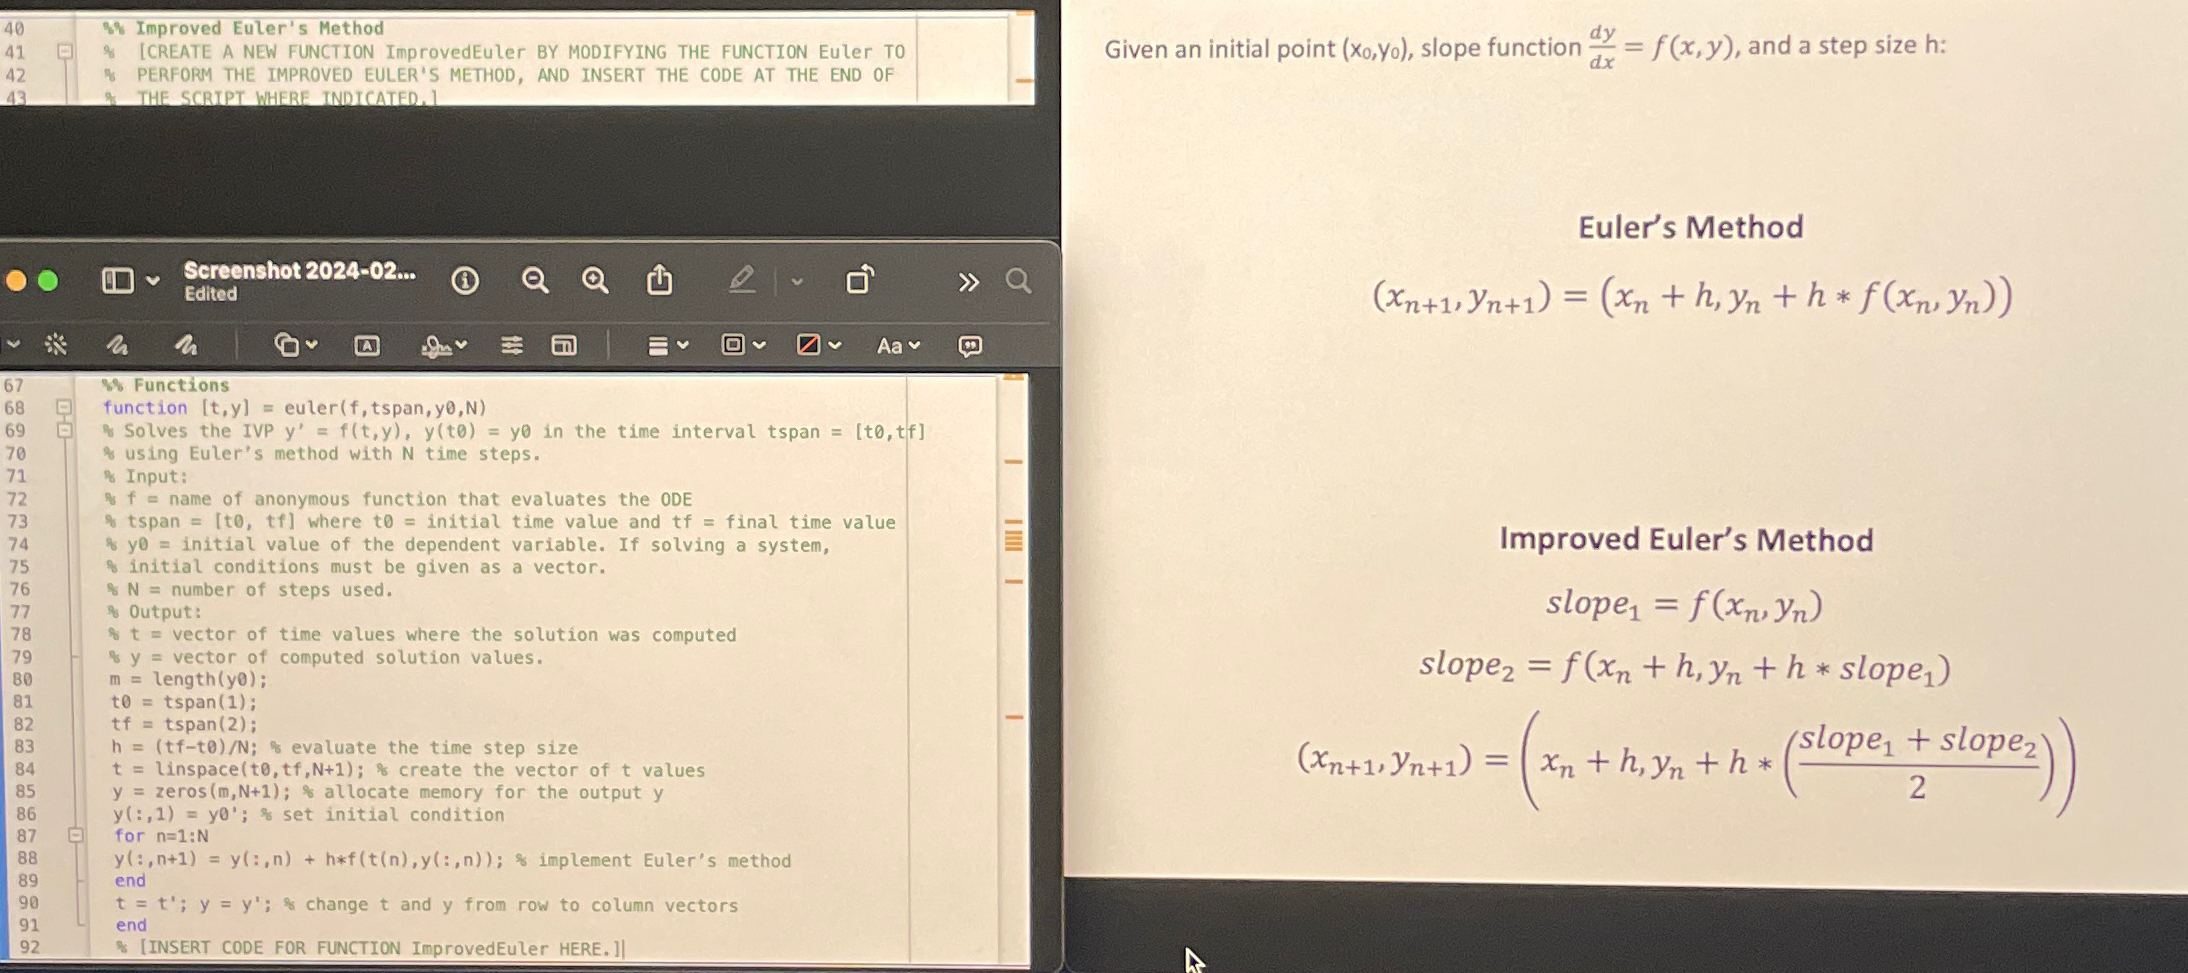 40 %% Improved Euler's Method
41 % [CREATE A NEW FUNCTION ImprovedEuler BY MODIFYING THE FUNCTION Euler TO
42 % PERFORM THE IMPROVED EULER'S METHOD, AND INSERT THE CODE AT THE END OF
43 % THE SCRIPT WHERE INDICATED.]
Screenshot 2024-02...
Edited
A
Aa
67 %% Functions
68 function [t,y] = euler(f,tspan,y0,N)
69 % Solves the IVP y' = f(t,y), y(t0) = y0 in the time interval tspan = [t0,tf]
70 % using Euler's method with N time steps.
71 % Input:
72 % f = name of anonymous function that evaluates the ODE
73 % tspan = [t0, tf] where t0 = initial time value and tf = final time value
74 % y0 = initial value of the dependent variable. If solving a system,
75 % initial conditions must be given as a vector.
76 % N = number of steps used.
77 % Output:
78 % t = vector of time values where the solution was computed
79 % y = vector of computed solution values.
80 m = length(y0);
81 t0 = tspan(1);
82 tf = tspan(2);
83 h = (tf-t0)/N; % evaluate the time step size
84 t = linspace(t0,tf,N+1); % create the vector of t values
85 y = zeros(m,N+1); % allocate memory for the output y
86 y(:,1) = y0'; % set initial condition
87 for n=1:N
88 y(:,n+1) = y(:,n) + h*f(t(n),y(:,n)); % implement Euler's method
89 end
90 t = t'; y = y'; % change t and y from row to column vectors
91 end
92 % [INSERT CODE FOR FUNCTION ImprovedEuler HERE.]
Given an initial point (x₀,y₀), slope function dy/dx = f(x, y), and a step size h:
Euler's Method
(xₙ₊₁, yₙ₊₁) = (xₙ + h, yₙ + h * f(xₙ, yₙ))
Improved Euler's Method
slope₁ = f(xₙ, yₙ)
slope₂ = f(xₙ + h, yₙ + h * slope₁)
(xₙ₊₁, yₙ₊₁) = (xₙ + h, yₙ + h * ((slope₁ + slope₂)/2))